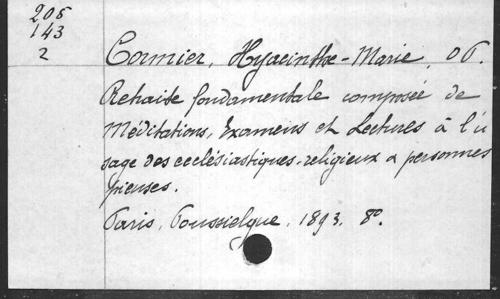 205
143
2
Cormier, Hyacinthe-Marie, OP.
Retraite fondamentale composée de
Méditations, Examens et Lectures à l'u
sage des ecclésiastiques, religieux & personnes
pieuses.
Paris, Poussielgue, 1893. 8º.